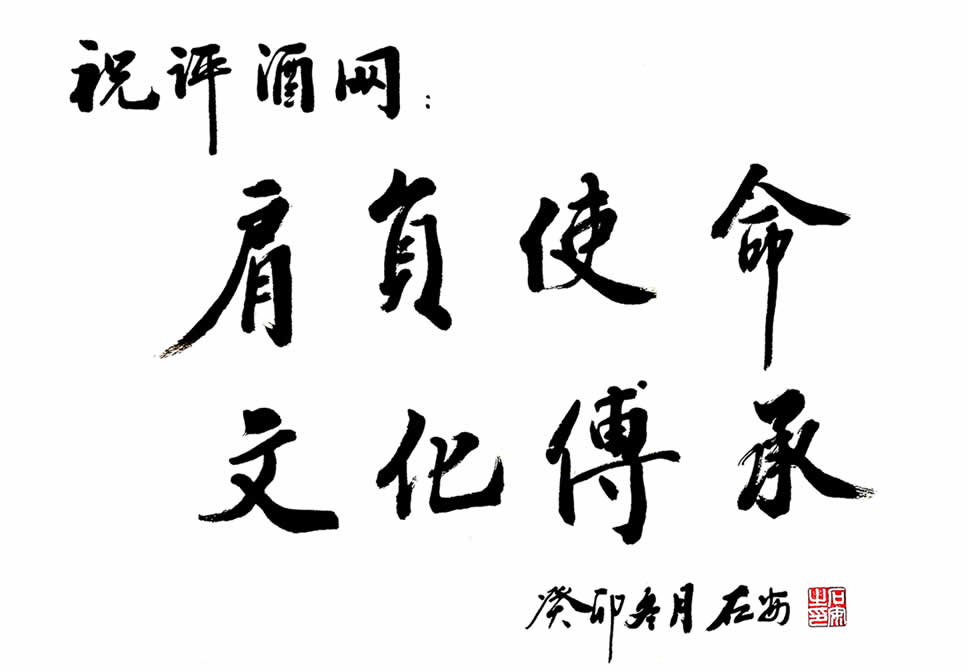 祝评酒网：
肩負使命
文化傳承
癸卯冬月 石安
石安之印